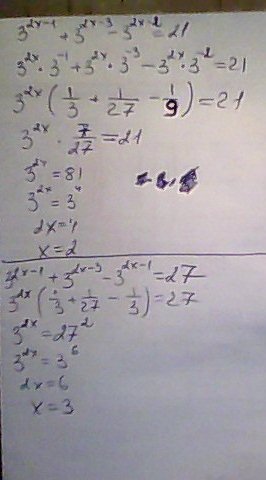 3^{2x-1} + 3^{2x-3} - 3^{2x-2} = 21
3^{2x} · 3^{-1} + 3^{2x} · 3^{-3} - 3^{2x} · 3^{-2} = 21
3^{2x} (1/3 + 1/27 - 1/9) = 21
3^{2x} · 7/27 = 21
3^{2x} = 81
3^{2x} = 3^4
2x = 4
x = 2
3^{2x-1} + 3^{2x-3} - 3^{2x-1} = 27
3^{2x} (1/3 + 1/27 - 1/3) = 27
3^{2x} = 27^2
3^{2x} = 3^6
2x = 6
x = 3